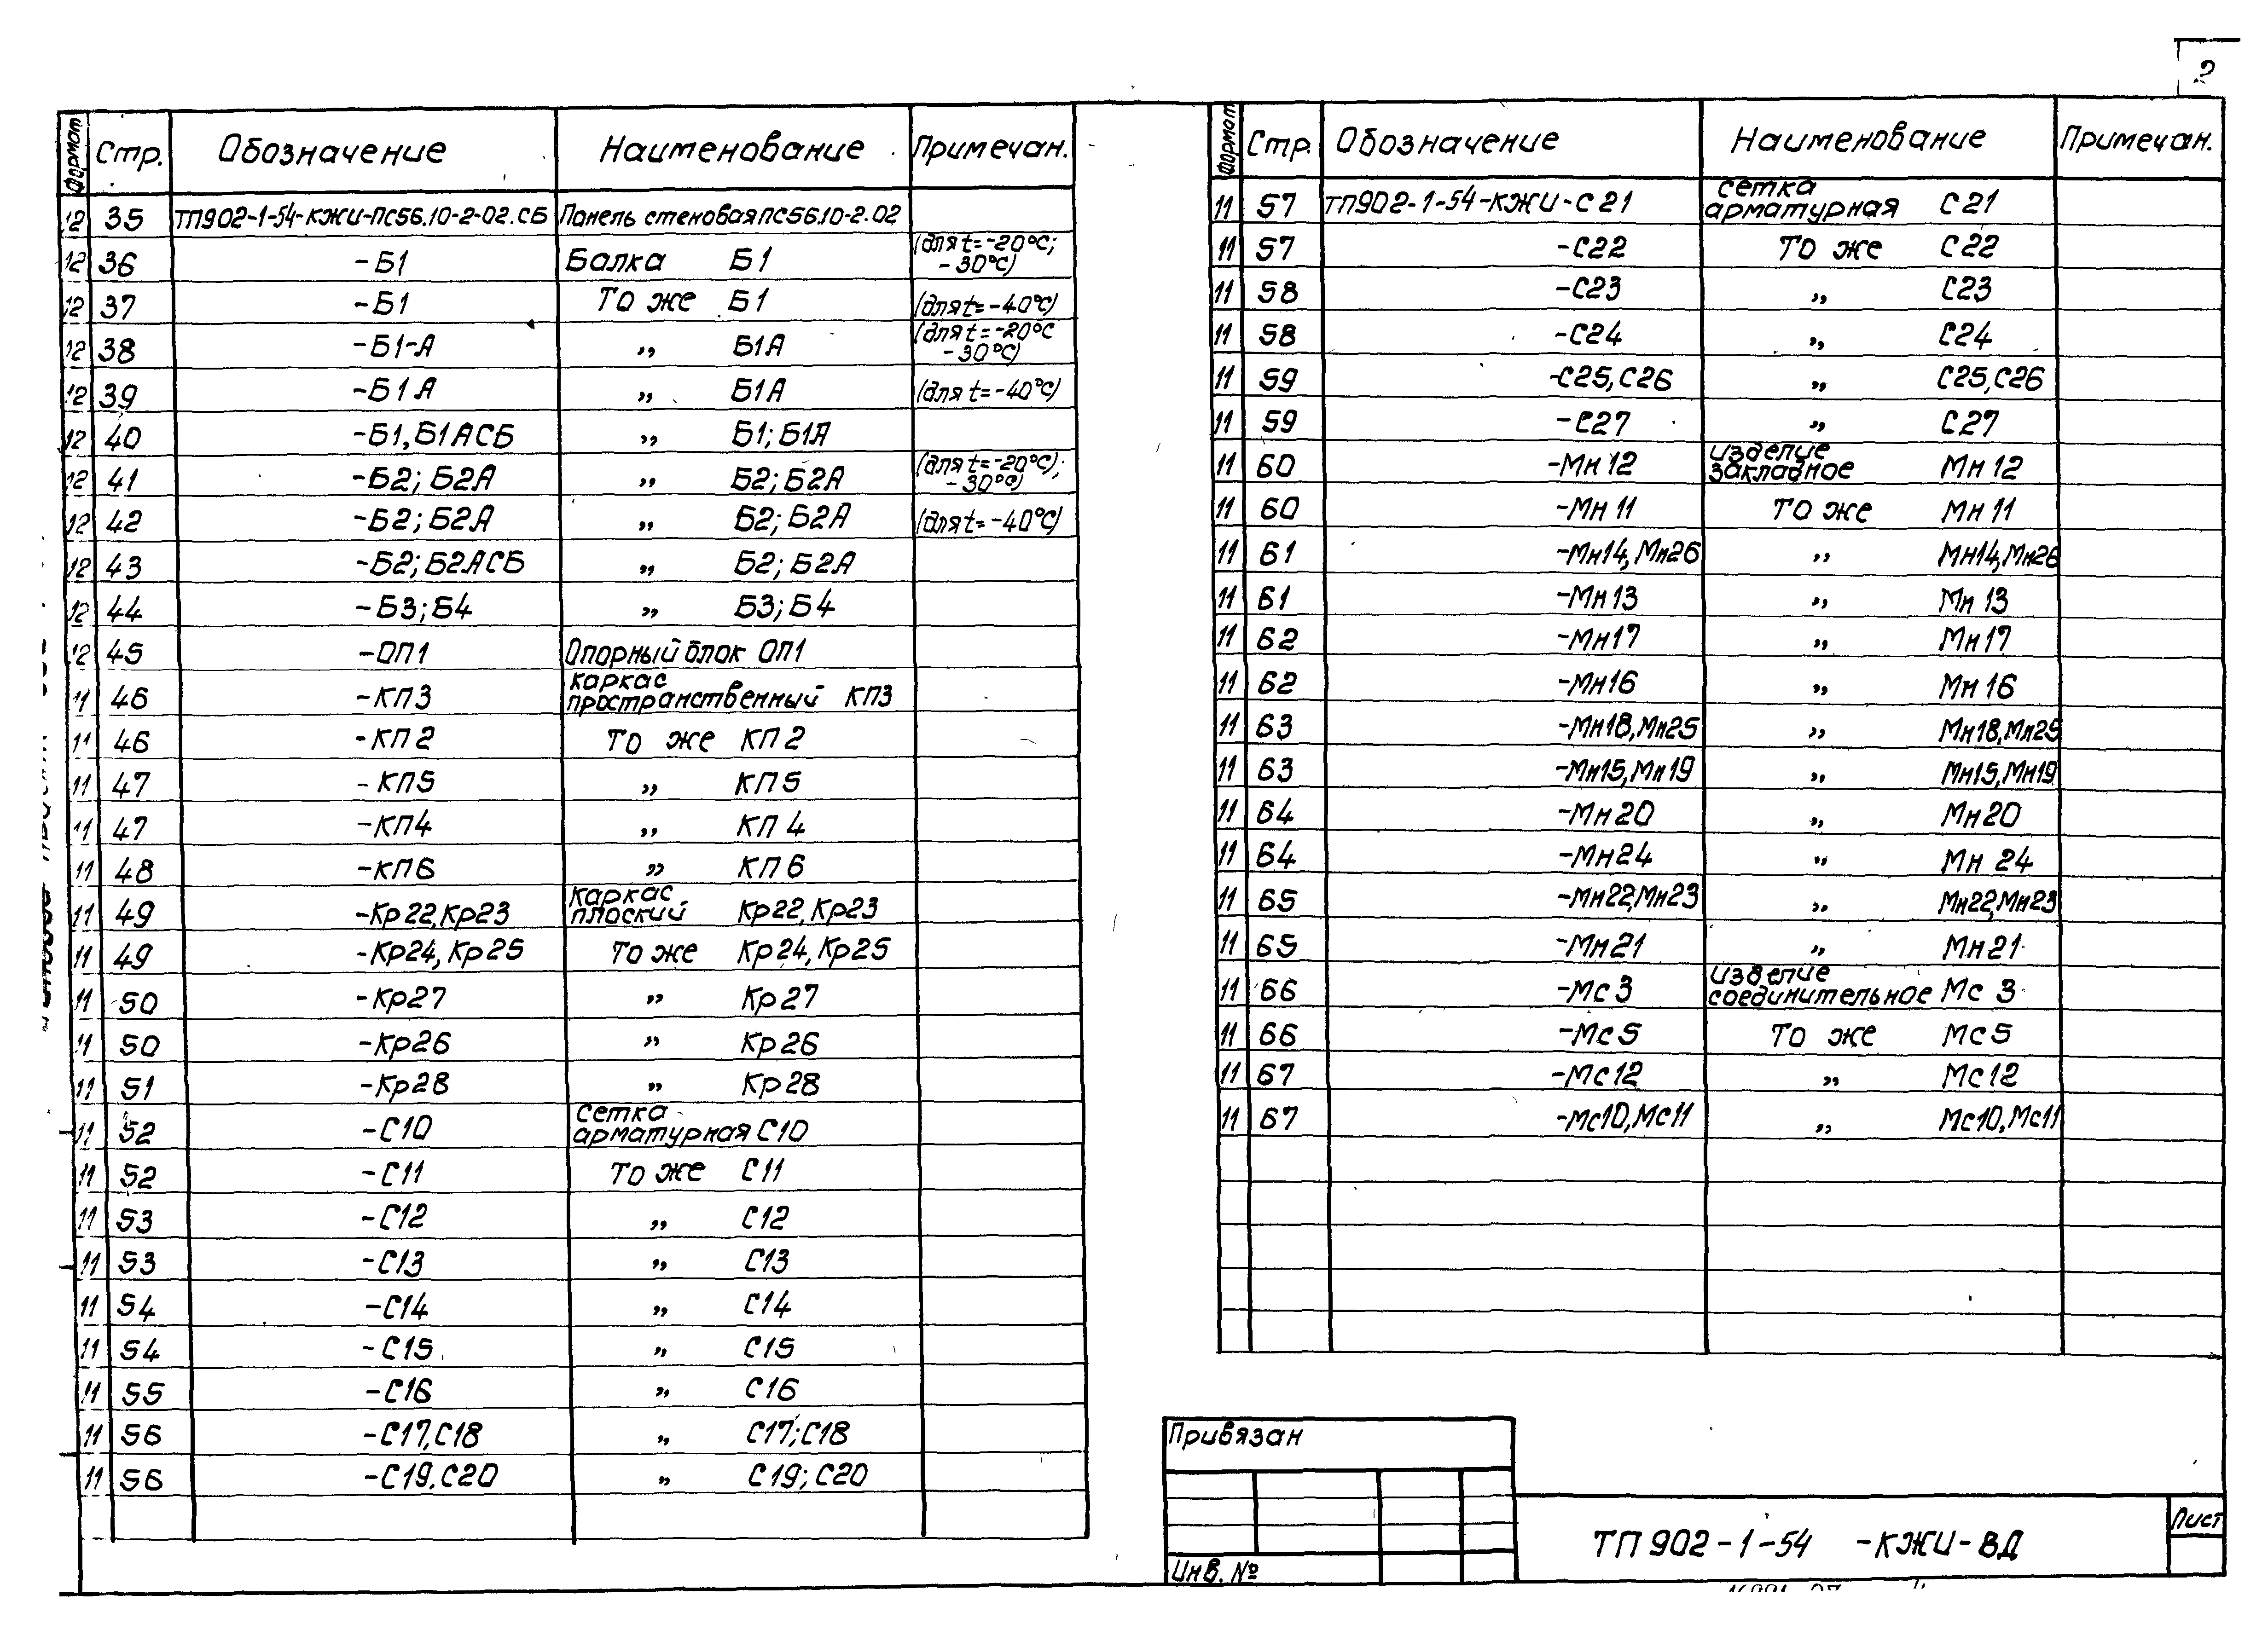 2
Формат Стр. Обозначение Наименование Примечан.
12 35 ТП902-1-54-КЖИ-ПС56.10-2-02.СБ Панель стеновая ПС56.10-2.02
12 36 -Б1 Балка Б1 (для t=-20°С; -30°С)
12 37 -Б1 То же Б1 (для t=-40°С)
12 38 -Б1-А „ Б1А (для t=-20°С -30°С)
12 39 -Б1А „ Б1А (для t=-40°С)
12 40 -Б1,Б1АСБ „ Б1; Б1А
12 41 -Б2; Б2А „ Б2; Б2А (для t=-20°С); -30°С)
12 42 -Б2; Б2А „ Б2; Б2А (для t=-40°С)
12 43 -Б2; Б2АСБ „ Б2; Б2А
12 44 -Б3; Б4 „ Б3; Б4
12 45 -ОП1 Опорный блок ОП1
11 46 -КП3 каркас пространственный КП3
11 46 -КП2 То же КП2
11 47 -КП5 „ КП5
11 47 -КП4 „ КП4
11 48 -КП6 „ КП6
11 49 -Кр22,Кр23 каркас плоский Кр22,Кр23
11 49 -Кр24,Кр25 то же Кр24,Кр25
11 50 -Кр27 „ Кр27
11 50 -Кр26 „ Кр26
11 51 -Кр28 „ Кр28
11 52 -С10 сетка арматурная С10
11 52 -С11 то же С11
11 53 -С12 „ С12
11 53 -С13 „ С13
11 54 -С14 „ С14
11 54 -С15 „ С15
11 55 -С16 „ С16
11 56 -С17,С18 „ С17; С18
11 56 -С19,С20 „ С19; С20
Формат Стр. Обозначение Наименование Примечан.
11 57 ТП902-1-54-КЖИ-С21 сетка арматурная С21
11 57 -С22 то же С22
11 58 -С23 „ С23
11 58 -С24 „ С24
11 59 -С25,С26 „ С25,С26
11 59 -С27 „ С27
11 60 -Мн12 изделие закладное Мн12
11 60 -Мн11 то же Мн11
11 61 -Мн14,Мн26 „ Мн14,Мн26
11 61 -Мн13 „ Мн13
11 62 -Мн17 „ Мн17
11 62 -Мн16 „ Мн16
11 63 -Мн18,Мн25 „ Мн18,Мн25
11 63 -Мн15,Мн19 „ Мн15,Мн19
11 64 -Мн20 „ Мн20
11 64 -Мн24 „ Мн24
11 65 -Мн22,Мн23 „ Мн22,Мн23
11 65 -Мн21 „ Мн21
11 66 -Мс3 изделие соединительное Мс3
11 66 -Мс5 то же Мс5
11 67 -Мс12 „ Мс12
11 67 -Мс10,Мс11 „ Мс10,Мс11
Привязан
Инв. №
ТП902-1-54 -КЖИ-ВД
Лист